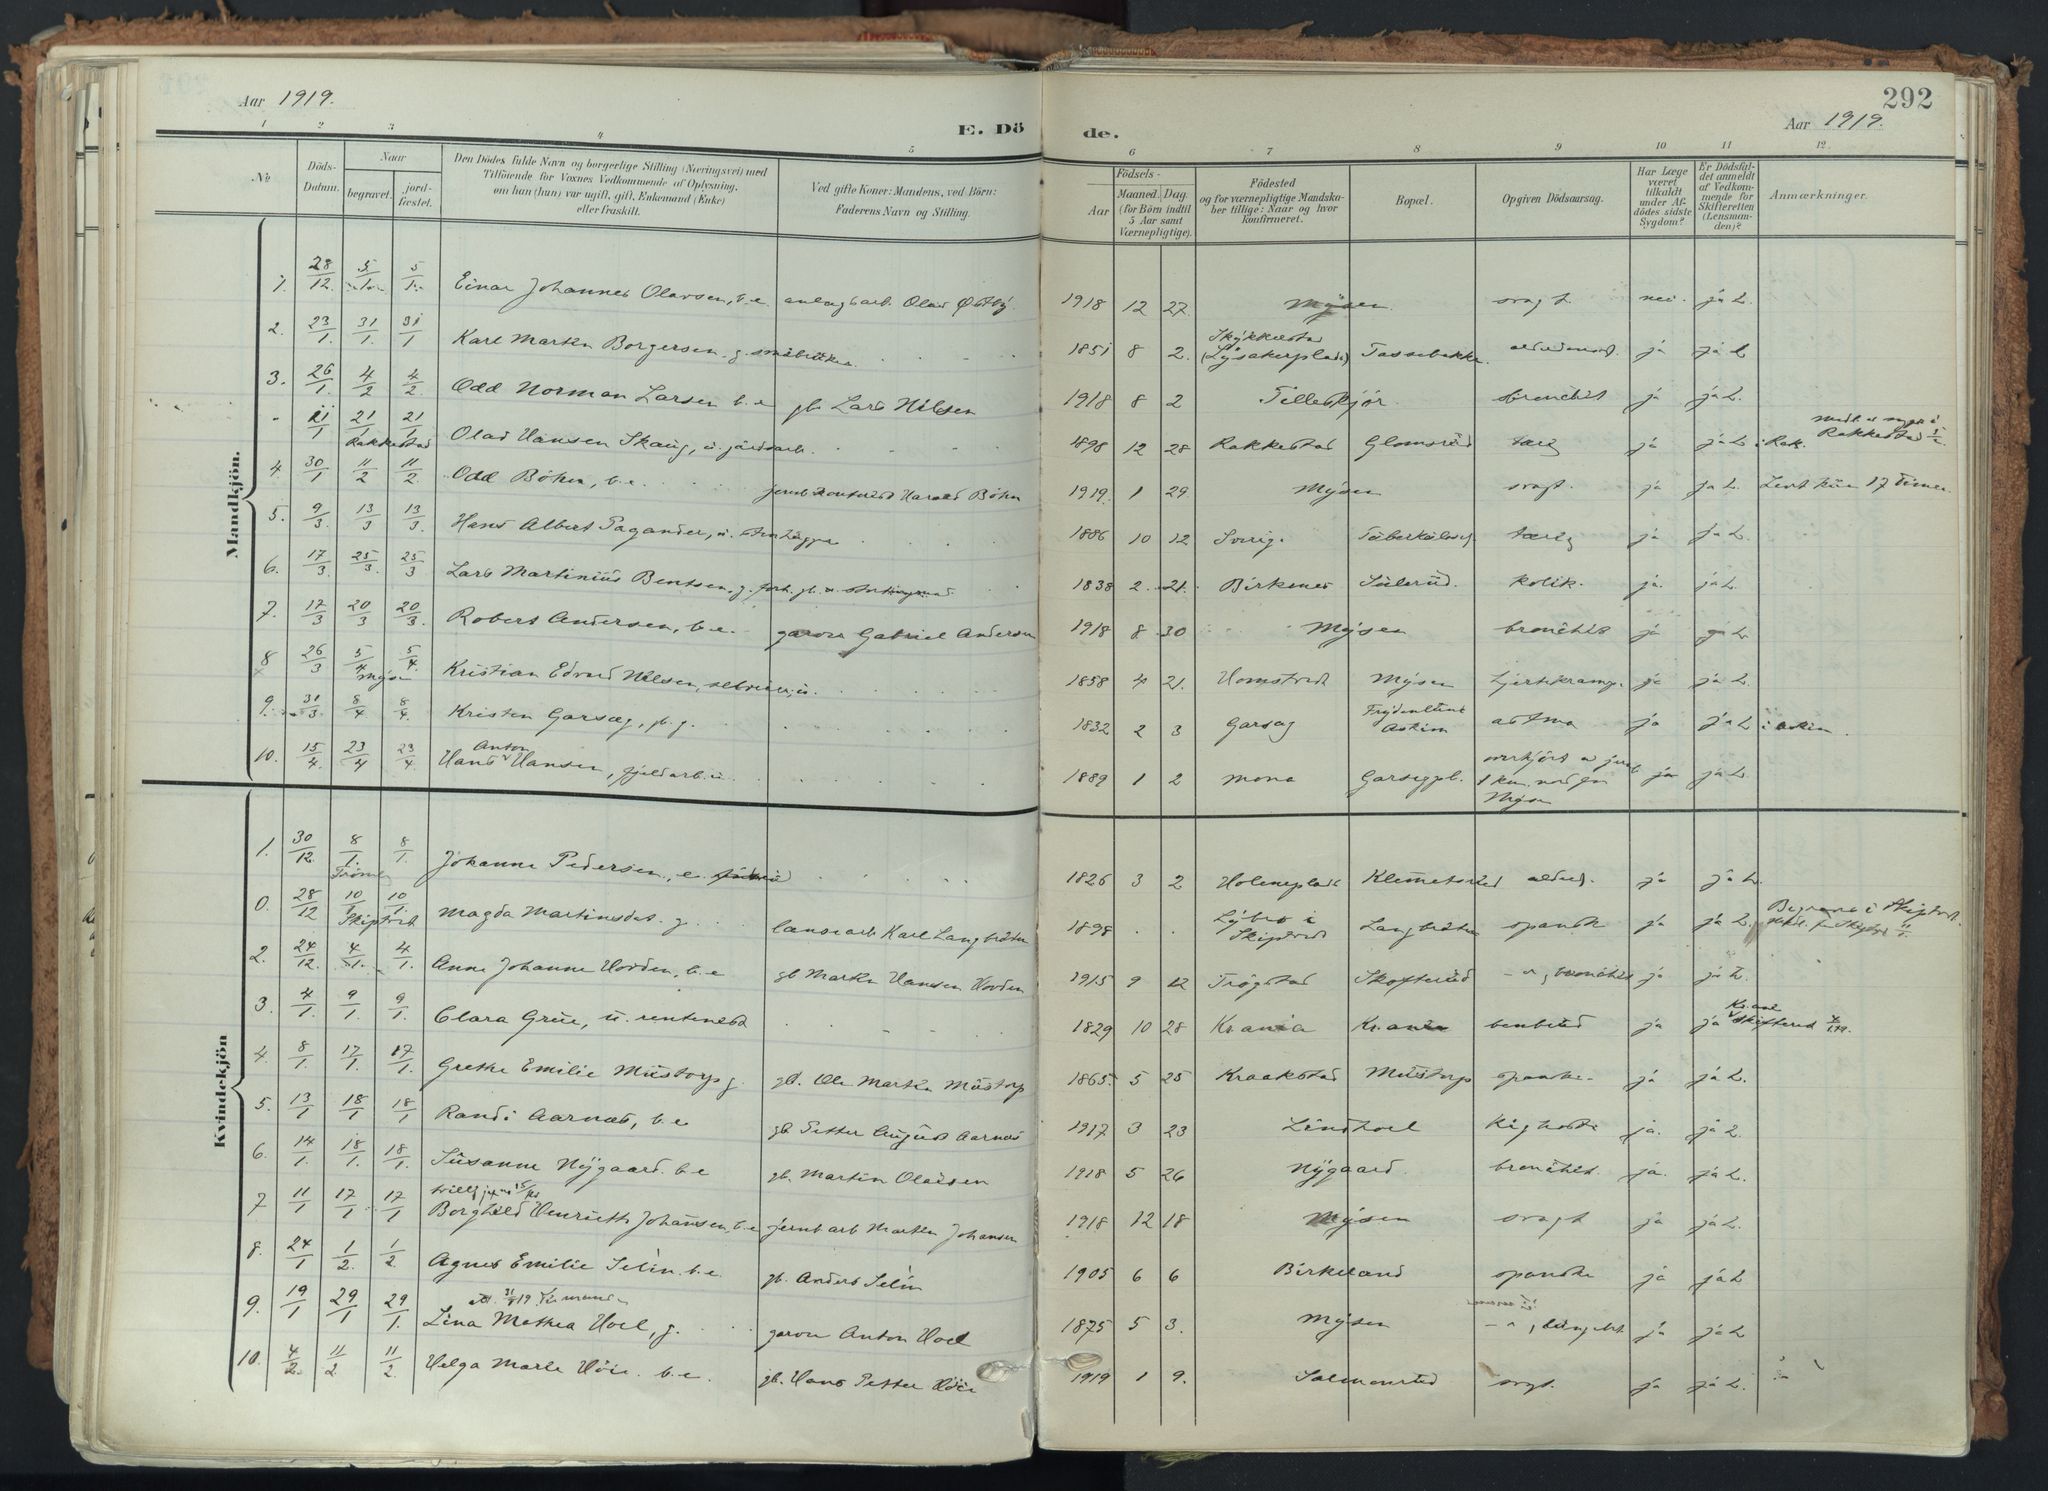 292
Aar 1919.
E. Döde.
Aar 1919.
1 2 3 4 5 6 7 8 9 10 11 12
No
Döds-Datum.
Naar
begravet.
jord-fæstet.
Den Dödes fulde Navn og borgerlige Stilling (Næringsvei) med
Tilföiende for Voxnes Vedkommende af Oplysning,
om han (hun) var ugift, gift, Enkemand (Enke)
eller fraskilt.
Ved gifte Koner: Mandens, ved Börn:
Faderens Navn og Stilling.
Födsels-
Aar
Maaned. Dag.
(for Börn indtil
5 Aar samt
Værnepligtige).
Födested
og for værnepligtige Mandska-
ber tillige: Naar og hvor
konfirmeret.
Bopæl.
Opgiven Dödsaarsag.
Har Læge
været
tilkaldt
under Af-
dödes sidste
Sygdom?
Er Dödsfal-
det anmeldt
af Vedkom-
mende for
Skifteretten
(Lensman-
den)?
Anmærkninger.
Mandkjön.
1. 28/12 5/1 5/1 Einar Johannes Olavsen, b.e. anlægsarb. Olav Østby 1918 12 27. Mysen svagt nei. ja L.
2. 23/1 31/1 31/1 Karl Martin Borgersen g. småbruker 1851 8 2. Skykkelstad (Lysakerplads) Tassebakke ja ja L
3. 26/1 4/2 4/2 Odd Norman Larsen b.e. gb. Lars Nilsen 1918 8 2 bronchit ja ja L.
- 11/1 21/1 21/1 Rakkestad Olav Hansen Skaug, u. jordarb. 1898 12 28 Rakkestad Glomsrud tæring ja ja L i Rak.
Rakkestad
4. 30/1 11/2 11/2 Odd Böhn, b.e. Harald Böhn 1919. 1 29. Mysen svagt. ja ja L. Levt kun 17 timer
5. 9/3 13/3 13/3 Hans Albert Pagander, u. stenhugger 1886 10 12 Sverig. tæring ja ja L.
6. 17/3 25/3 25/3 Lars Martinius Bentsen, g. forh. gb. 1838 2. 21. Birkenes Sulerud. kolik. ja. ja L
7. 17/3 20/3 20/3 Robert Andersen, b.e. garver Gabriel Andersen 1918 8 30 Mysen bronchit ja ja L.
8 26/3 5/4 5/4 Mysen Kristian Edvard Nilsen, u. 1858 4 21. Homstvedt Mysen hjertekrampe ja ja L.
9. 31/3 8/4 8/4 Kristen Garseg, g. 1832 2 3 Garseg Frydenlund Askim astma ja ja L i Askim.
10. 15/4 23/4 23/4 Hans Anton Hansen, fjeldarb. u. 1889 1 2 Mona Garsegpl. overkjört a jernb. 1 km. nord for Mysen ja ja L.
Kvindekjön
1. 30/12 8/1. 8/1. Johanne Pedersen, e. 1826 3 2 Klemetsrud alderd. ja ja L.
0. 28/12 10/1 10/1 Skiptvet Magda Martinsdat. g. Karl Langbråten 1898 Lybro i Skiptvet Langbråten spansk ja ja L Begravet i Skiptvet.
2. 24/12. 4/1. 4/1. Anne Johanne Hovden, b.e gb Martin Hansen Hovden 1915 9 12 Trögstad Skofterud -"-, bronchit ja ja L.
3. 4/1. 9/1. 9/1. Clara Grue, u. 1829 10 28 Kr.ania Kr.ania benbrud ja ja Kr.ania skifteret
4. 8/1. 17/1. 17/1 Grethe Emilie Mustorp g. gb. Ole Martin Mustorp 1865. 5 25 Kraakstad Mustorp spanske ja ja L.
5. 13/1 18/1 18/1 Randi Aarnæs, b.e gb. Petter August Aarnæs 1917 3 23 Lindhoel Kighoste ja. ja L.
6. 14/1. 18/1. 18/1. Susanne Nygaard. b.e gb. Martin Olaisen 1918 5 26 Nygaard. bronchit. ja. ja L.
7 11/1 17/1 17/1 Borghild Henriette Johansen, b.e jernb arb Martin Johansen 1918 12 18 Mysen svagt ja ja L.
8. 24/1 1/2. 1/2 Agnes Emilie Selin. b.e. gb. Anders Selin 1905 6 6 Birkeland spanske ja ja L
9. 19/1 29/1 29/1. Lina Mathea Hoel, g. garver Anton Hoel 1875 5 3. Mysen -"-, lungebet. ja ja L
10. 4/2. 11/2. 11/2. Helga Marie Höie. b.e. gb. Hans Petter Höie 1919 1 9. Salmonrud svagt. ja ja L.